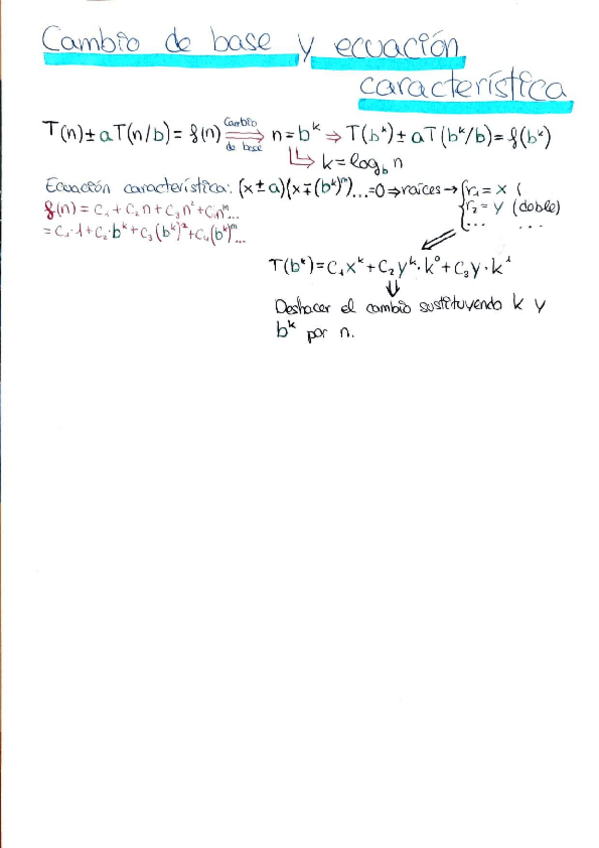 Cambio de base y ecuación
característica
T(n)±aT(n/b)=f(n) Cambio de base ⇒ n=b^k ⇒ T(b^k)±aT(b^k/b)=f(b^k)
↳ k=log_b n
Ecuación característica: (x±a)(x∓(b^k)^m)...=0⇒raíces→{r₁=x (
f(n)=c₁+c₂n+c₃n²+c₄n^m... {r₂=y (doble)
=c₁·1+c₂·b^k+c₃(b^k)²+c₄(b^k)^m... {... ...
T(b^k)=c₁x^k+c₂y^k·k⁰+c₃y·k¹
Deshacer el cambio sustituyendo k y
b^k por n.